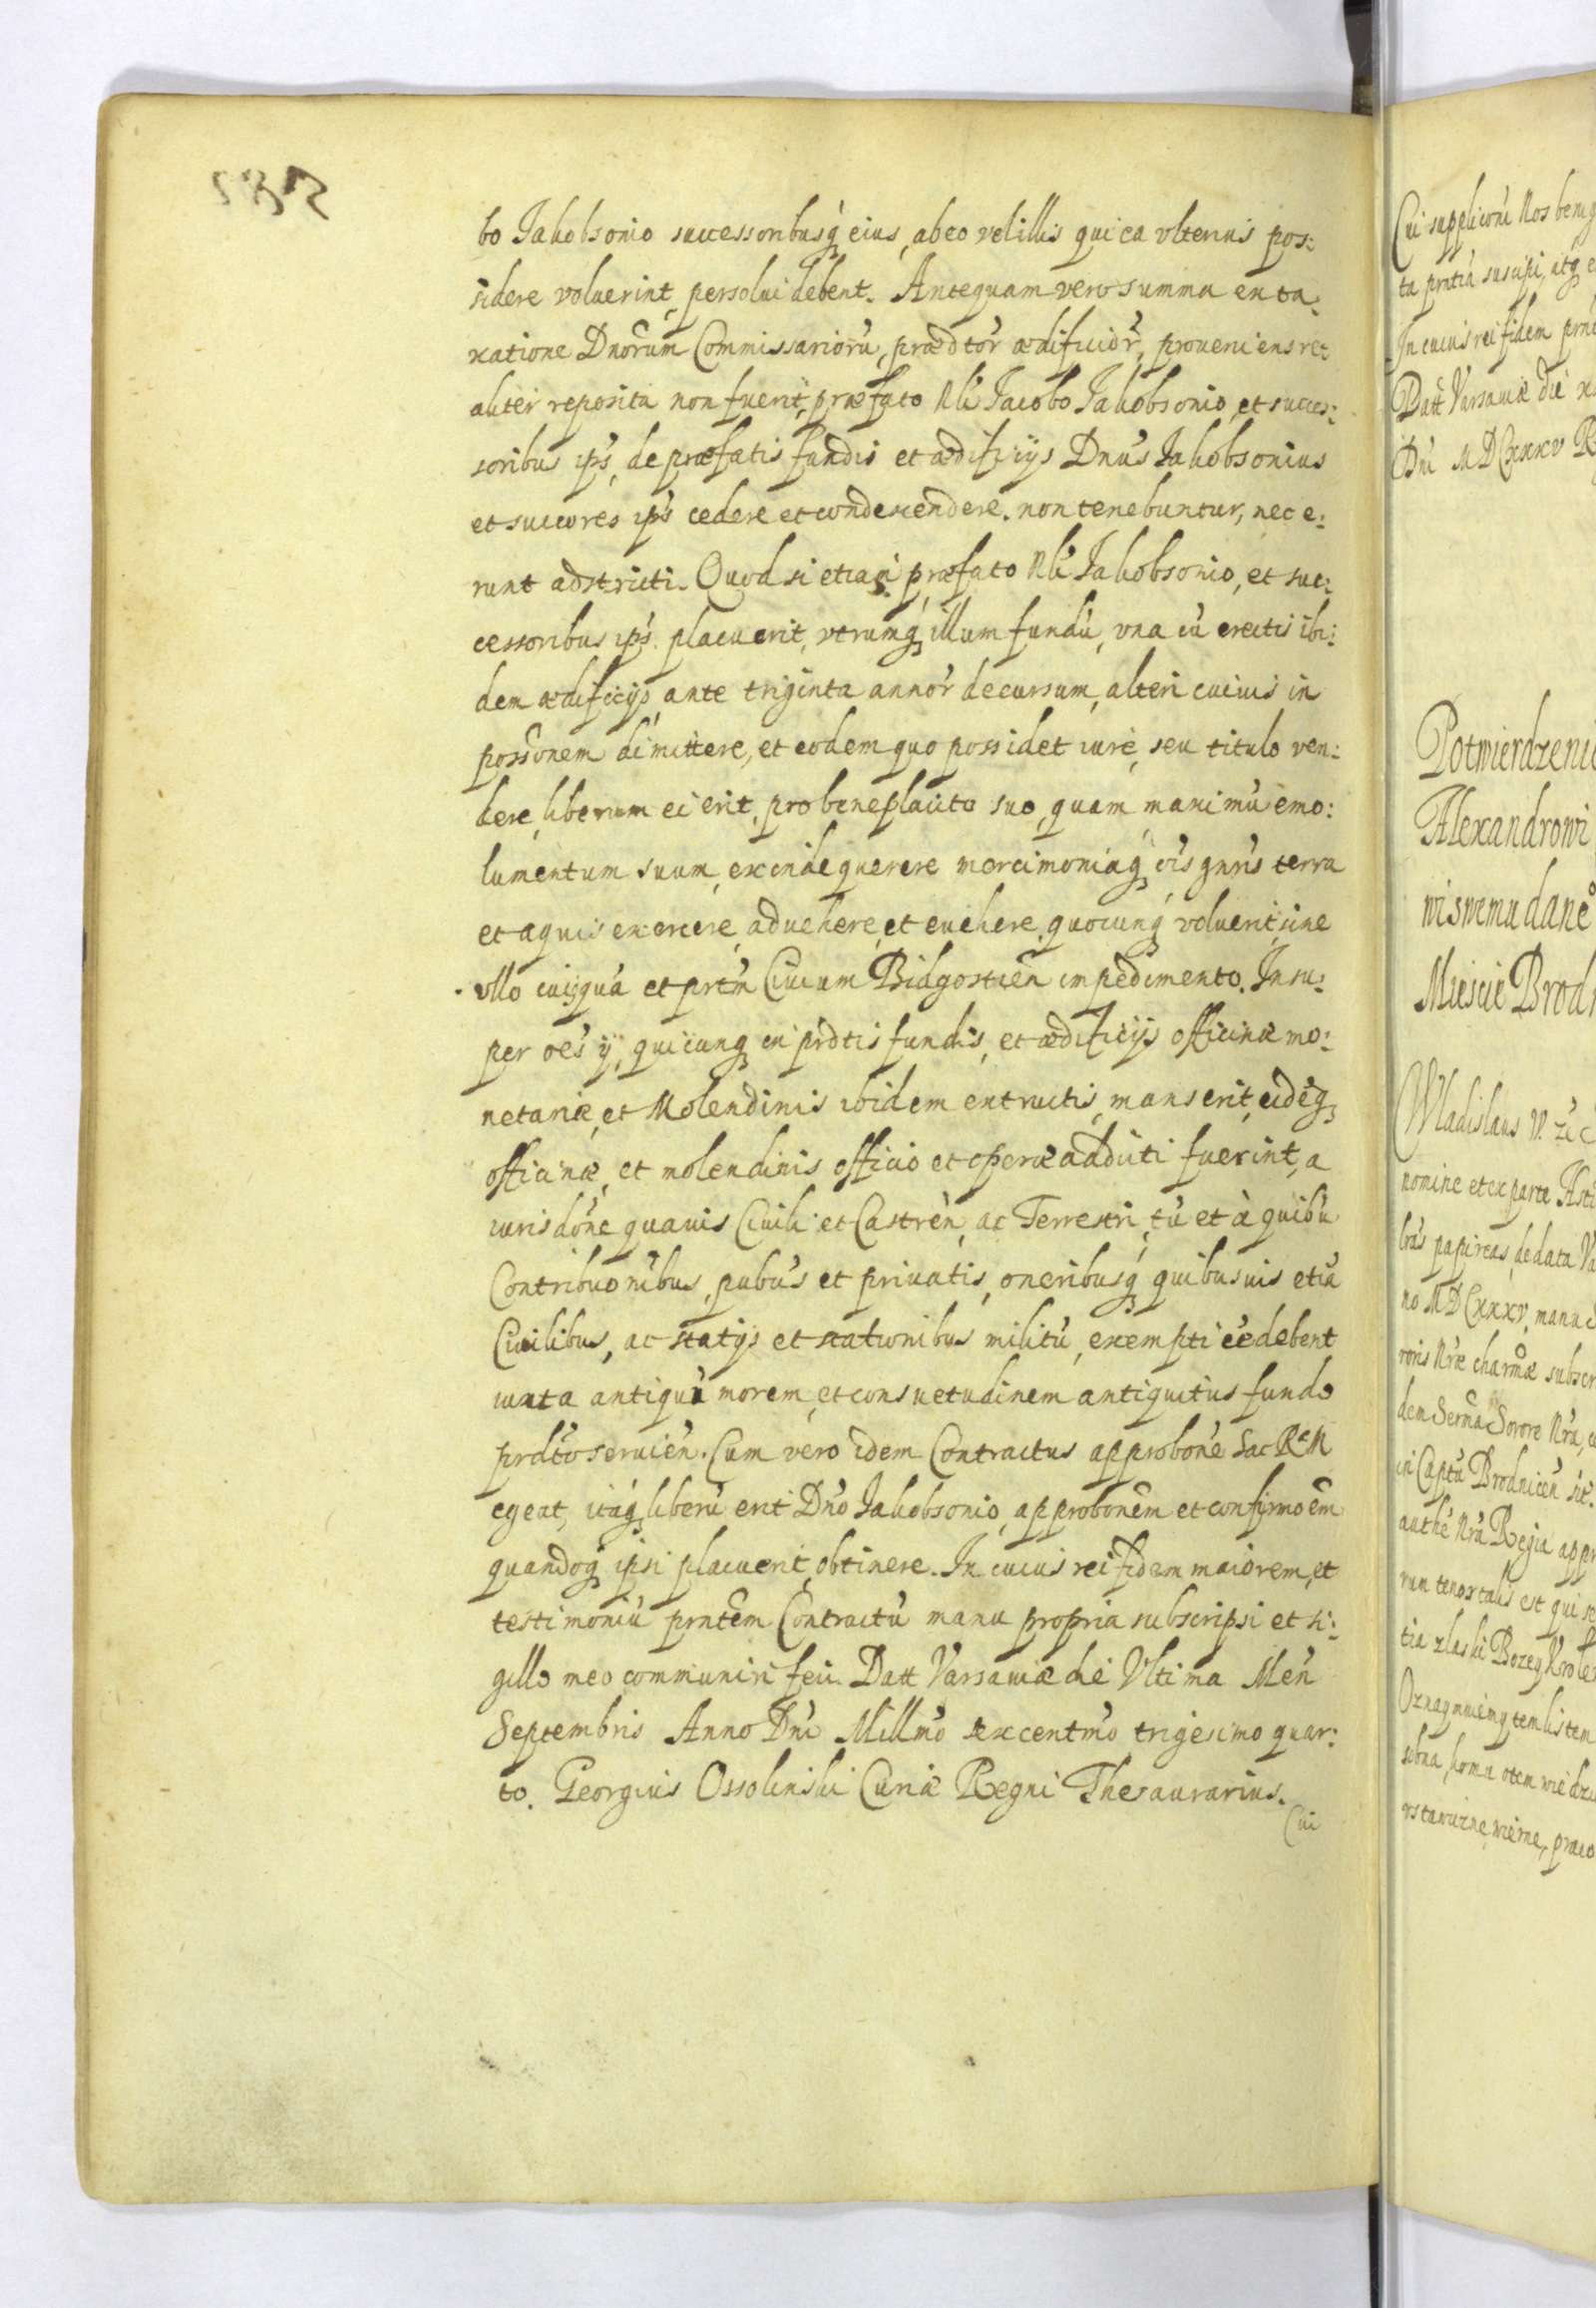 bo Jakobsonio successoribusq́ eius, ab eo vel illis qui ea vlterius pos:
sidere voluerint, persolui debent. Antequam vero summa ex ta:
xatione Dnorum Commissariorũ, prædtor̃ ædificior̃, proueniens re:
aliter reposita non fuerit, præfato Nli Jacobo Jakobsonio, et succes:
soribus ips̃, de præfatis fundis et ædificijs Dnus Jakobsonius
et succores ips̃ cedere et condescendere non tenebuntur, nec e:
runt adstricti. Quod si etiam præfato Nli Jakobsonio, et suc:
cessoribus ips̃ placuerit, vtrumq́ illum fundũ, vna cũ erectis ibi:
dem ædificijs, ante triginta annor̃ decursum, alteri cuiuis in
possonem dimittere, et eodem quo possidet iure, seu titulo ven:
dere, liberum ei erit, pro beneplacito suo, quam maximũ emo:
lumentum suum, exinde querere mercimoniaq́ ois gnris terra
et aquis exercere, aduehere, et euehere, quocunq́ voluerit, sine
vllo cuiusquã et prẽm Ciuium Bidgostien̄ impedimento. Insu:
per oẽs ij, quicunq́ in prdtis fundis, et ædificijs officinæ mo:
netariæ, et Molendinis ibidem extructis, manserit, eidẽq́
officinæ, et molendinis officio et operæ addicti fuerint, a
iurisdõne quauis Ciuili et Castren̄, ac Terrestri, tũ et à quibũ
Contribuonibus, pubũs et priuatis, oneribusq́ quibusuis etiã
Ciuilibus, ac statijs et stationibus militũ, exempti eẽ debent
iuxta antiquũ morem, et consuetudinem antiquitus fundo
prdto seruien̄. Cum vero idem Contractus approbone Sac Rᵉ M
egeat, itaq́ liberũ erit Dño Jakobsonio, approbonem et confirmoem
quandoq́ ipsi placuerit, obtinere. In cuius rei fidem maiorem, et
testimoniũ prntem Contractũ manu propria subscripsi et si:
gillo meo communiri feci. Datt Varsauiæ die Vltima Men̄
Septembris Anno Dni Millmo sexcentmo trigesimo quar:
to. Georgius Ossolinski Curiæ Regni Thesaurarius.
Cui
Cui supplicõni Nos benig
ta prntia suscipi, atq́ e
In cuius rei fidem prnt
Datt Varsauiæ die x
Dni MDCxxxv R
Potwierdzenie
Alexandrowi
Miescie Brodn
Wladislaus IV. zi c
nomine et ex parte
bras papireas, de data Va
no MDCxxxv, manu e
roris Nræ charmæ subscr
dem Serma Sorore Nra, c
in Captu Brodnicen̄ sit.
authe Nra Regia appr
rum tenor talis est qui se
tia z laski Bozey Krole
Oznaymuiemy tem listem
sobna, komu otem wiedzi